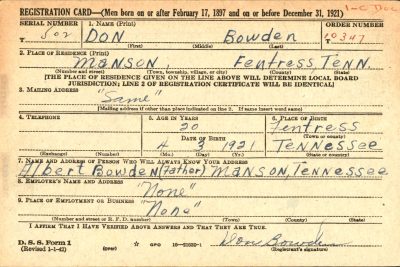 REGISTRATION CARD—(Men born on or after February 17, 1897 and on or before December 31, 1921)
SERIAL NUMBER 1. NAME (Print) ORDER NUMBER
502 DON Bowden 10347
(First) (Middle) (Last)
2. PLACE OF RESIDENCE (Print)
Manson, Fentress, Tenn.
(Number and street) (Town, township, village, or city) (County) (State)
[THE PLACE OF RESIDENCE GIVEN ON THE LINE ABOVE WILL DETERMINE LOCAL BOARD
JURISDICTION; LINE 2 OF REGISTRATION CERTIFICATE WILL BE IDENTICAL]
3. MAILING ADDRESS
"Same"
[Mailing address if other than place indicated on line 2. If same insert word same]
4. TELEPHONE 5. AGE IN YEARS 6. PLACE OF BIRTH
20 Fentress
DATE OF BIRTH (Town or county)
4 3 1921 Tennessee
(Exchange) (Number) (Mo.) (Day) (Yr.) (State or country)
7. NAME AND ADDRESS OF PERSON WHO WILL ALWAYS KNOW YOUR ADDRESS
Albert Bowden (Father) Manson, Tennessee
8. EMPLOYER'S NAME AND ADDRESS
"None"
9. PLACE OF EMPLOYMENT OR BUSINESS
"None"
(Number and street or R. F. D. number) (Town) (County) (State)
I AFFIRM THAT I HAVE VERIFIED ABOVE ANSWERS AND THAT THEY ARE TRUE.
D. S. S. Form 1
(Revised 1-1-42) (over) GPO 16—21630-1 Don Bowden
(Registrant's signature)